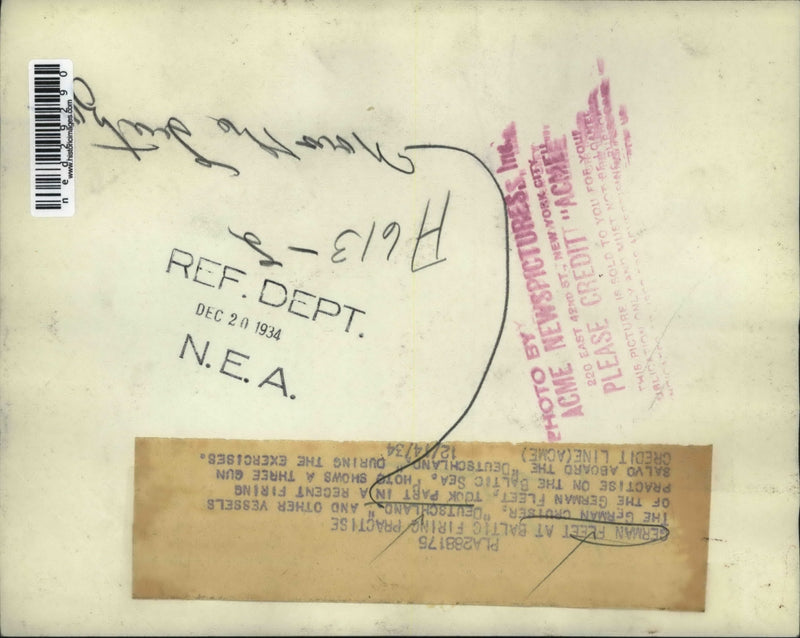 PLA268175
GERMAN FLEET AT BALTIC FIRING PRACTISE
THE GERMAN CRUISER, "DEUTSCHLAND," AND OTHER VESSELS
OF THE GERMAN FLEET, TOOK PART IN A RECENT FIRING
PRACTISE ON THE BALTIC SEA. PHOTO SHOWS A THREE GUN
SALVO ABOARD THE "DEUTSCHLAND," DURING THE EXERCISES.
CREDIT LINE(ACME) 12/14/34
REF. DEPT.
DEC 20 1934
N.E.A.
A613-
PHOTO BY
ACME NEWSPICTURES, Inc.
220 EAST 42ND ST., NEW YORK CITY
PLEASE CREDIT "ACME"
THIS PICTURE IS SOLD TO YOU FOR YOUR
THIS PICTURE ONLY AND MUST NOT BE
ned29290
www.historicimages.com